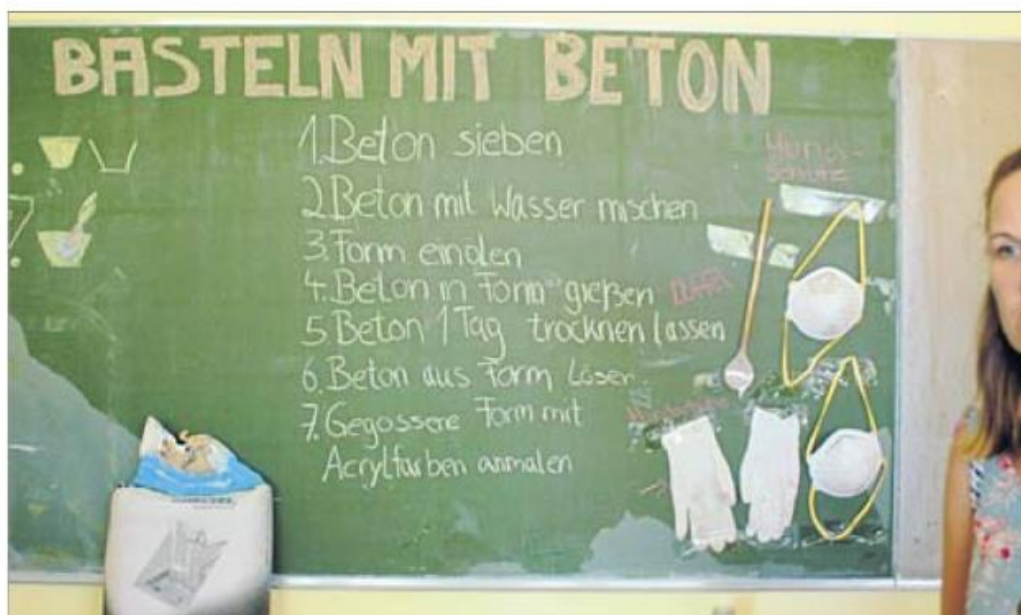 BASTELN MIT BETON
1. Beton sieben
2. Beton mit Wasser mischen
3. Form einölen
4. Beton in Form gießen
5 Beton 1 Tag trocknen lassen
6. Beton aus Form Lösen
7. Gegossere Form mit
Acrylfarben anmalen
Mund-
schutz
LÖFFEL